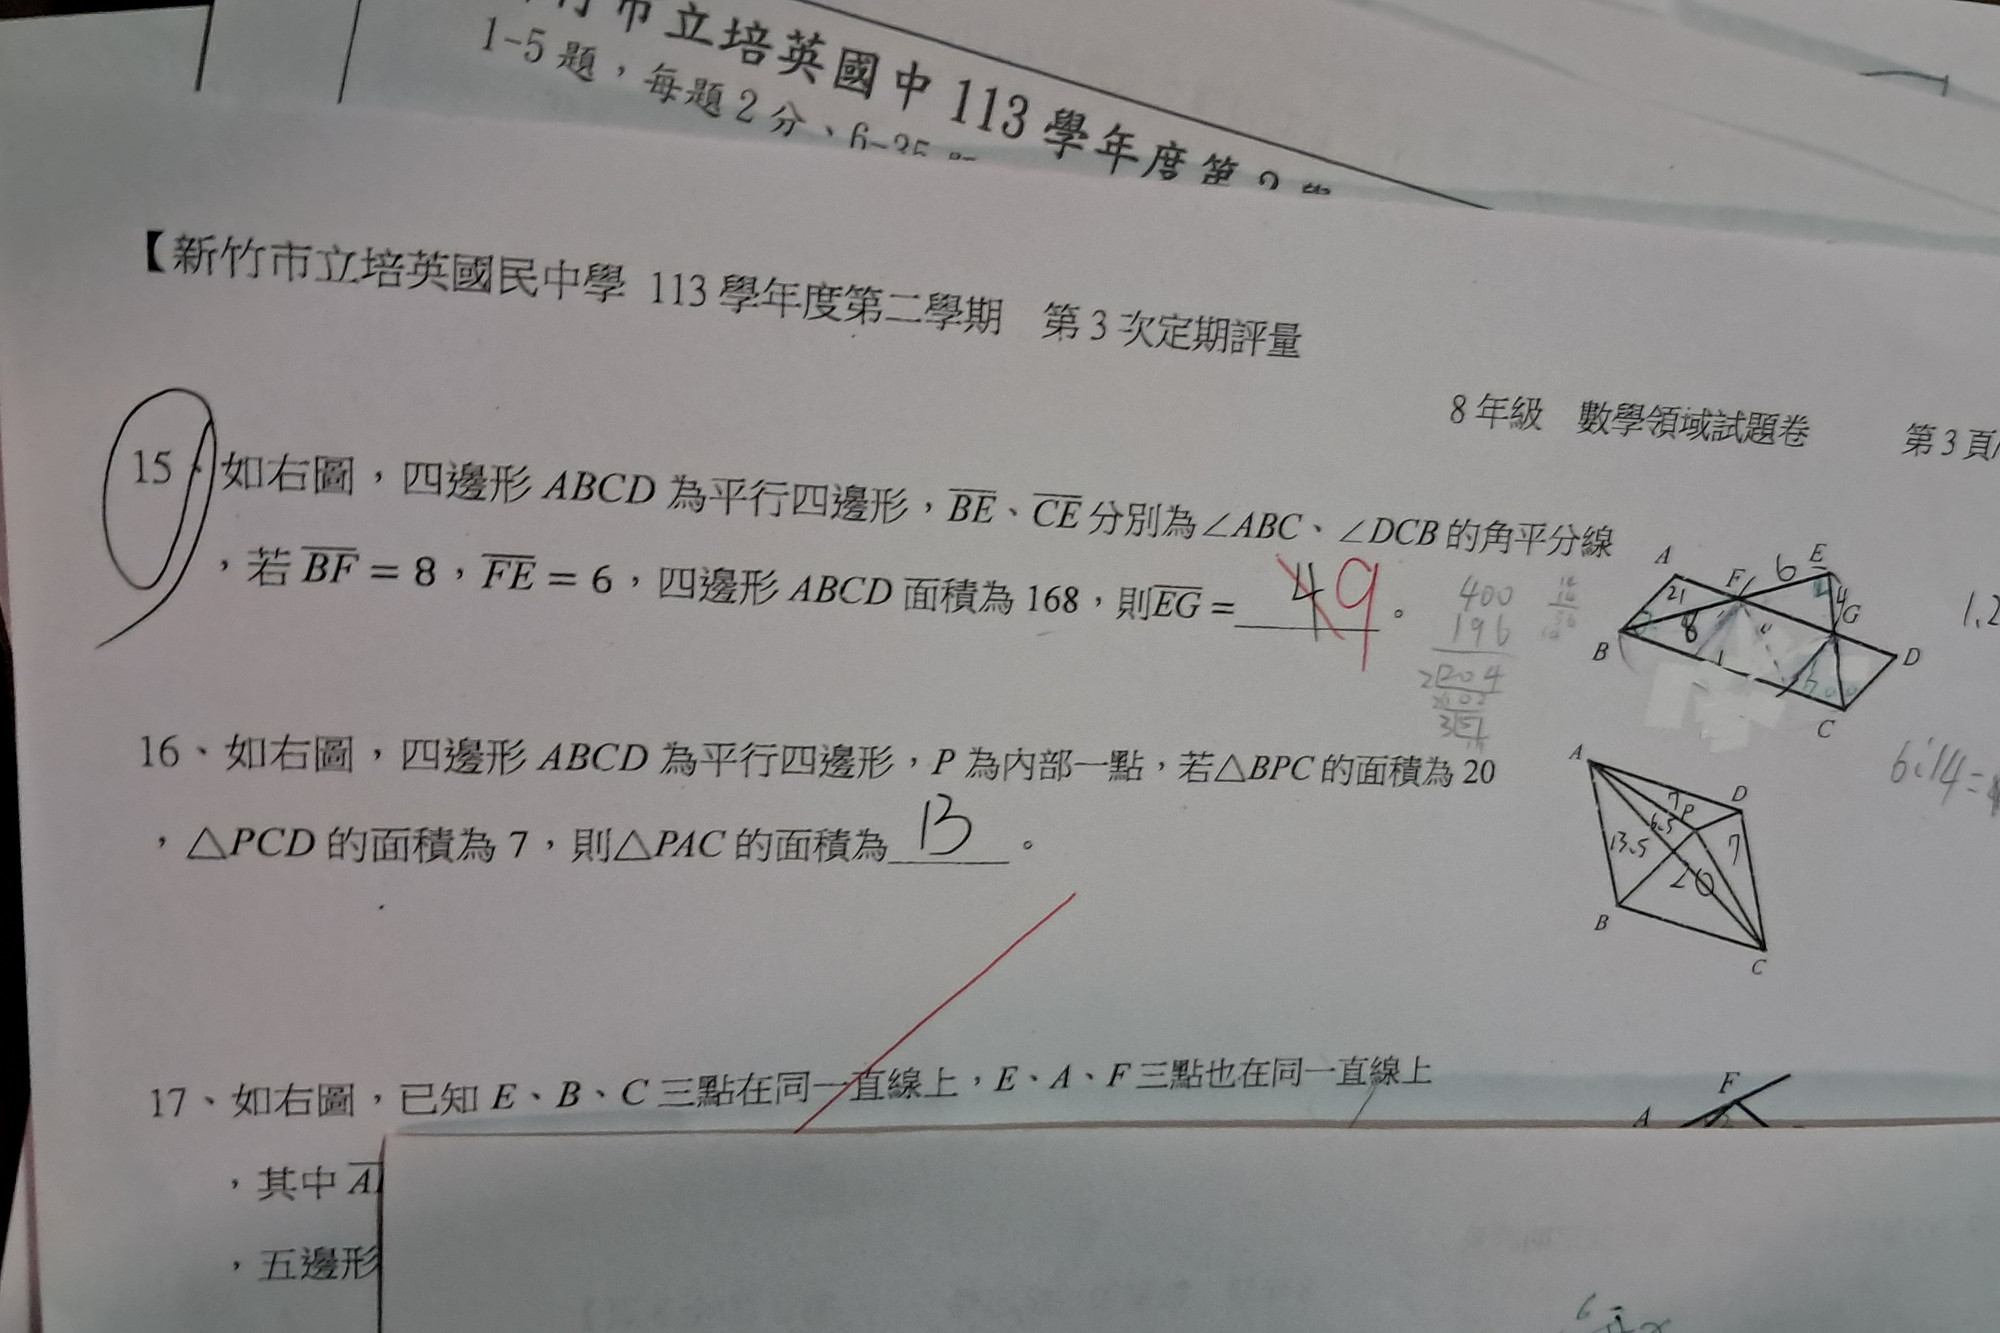 市立培英國中 113 學年度第
1-5 題，每題 2 分、6-35
【新竹市立培英國民中學 113 學年度第二學期 第 3 次定期評量
8 年級 數學領域試題卷 第 3 頁/
15、如右圖，四邊形 ABCD 為平行四邊形，BE、CE 分別為∠ABC、∠DCB 的角平分線
，若 BF = 8，FE = 6，四邊形 ABCD 面積為 168，則EG = 4 9 。
400
196
204
A F 6 E
21 8 4 G
B D
C
1.2
16、如右圖，四邊形 ABCD 為平行四邊形，P 為內部一點，若△BPC 的面積為 20
，△PCD 的面積為 7，則△PAC 的面積為 13 。
6:14=
A D
7 P
6.5
13.5 7
20
B
C
17、如右圖，已知 E、B、C 三點在同一直線上，E、A、F 三點也在同一直線上
F
A
，其中 A
，五邊形